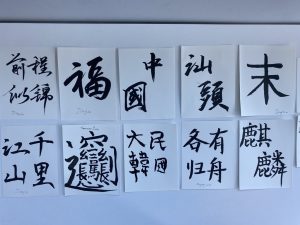 前程
似錦
福
中
國
汕
頭
末
千里
江山
𰻞
大韓
民國
各有
归舟
麒
麟